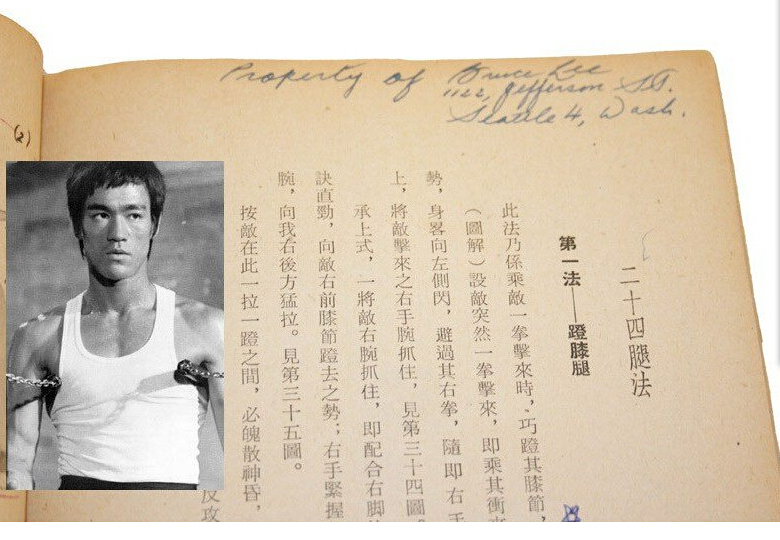 Property of Bruce Lee
1122, Jefferson ST.
Seattle 4, Wash.
(2)
二十四腿法
第一法——蹬膝腿
此法乃係乘敵一拳擊來時，巧蹬其膝節，
（圖解）設敵突然一拳擊來，即乘其衝
勢，身畧向左側閃，避過其右拳，隨即右手
上，將敵擊來之右手腕抓住，見第三十四圖
承上式，一將敵右腕抓住，即配合右脚
訣直勁，向敵右前膝節蹬去之勢；右手緊握
腕，向我右後方猛拉。見第三十五圖。
按敵在此一拉一蹬之間，必魄散神昏，
反攻